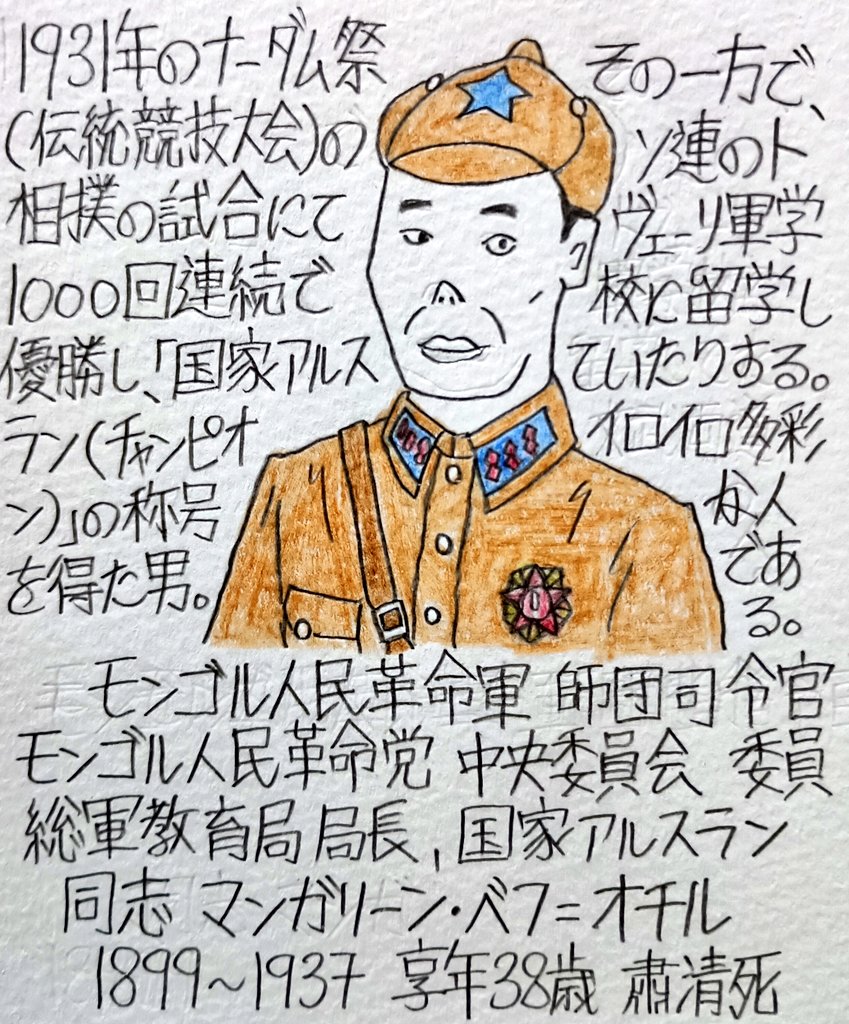 1931年のナーダム祭
(伝統競技大会)の
相撲の試合にて
1000回連続で
優勝し、「国家アルス
ラン(チャンピオ
ン)」の称号
を得た男。
その一方で、
ソ連のト
ヴェーリ軍学
校に留学し
ていたりする。
イロイロ多彩
な人
であ
る。
モンゴル人民革命軍 師団司令官
モンゴル人民革命党 中央委員会 委員
総軍教育局局長, 国家アルスラン
同志 マンガリーン・ベフ=オチル
1899~1937 享年38歳 粛清死